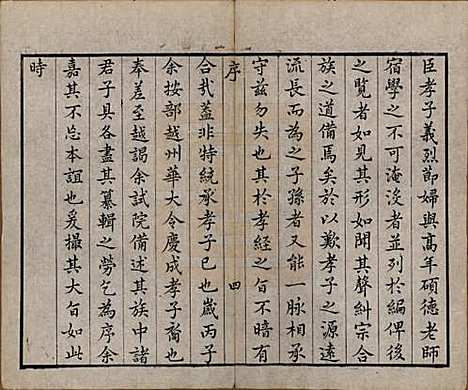 臣孝子義烈節婦與高年碩德老師
宿學之不可淹沒者並列於編俾後
之覽者如見其形如聞其聲糾宗合
族之道備焉矣於以歎孝子之源遠
流長而為之子孫者又能一脉相承
守茲勿失也其於孝經之旨不暗有
序 四
合哉蓋非特統承孝子已也歲丙子
余按部越州華大令慶成孝子裔也
奉差至越謁余試院備述其族中諸
君子具各盡其纂輯之勞乞為序余
嘉其不忘本誼也爰撮其大旨如此
時